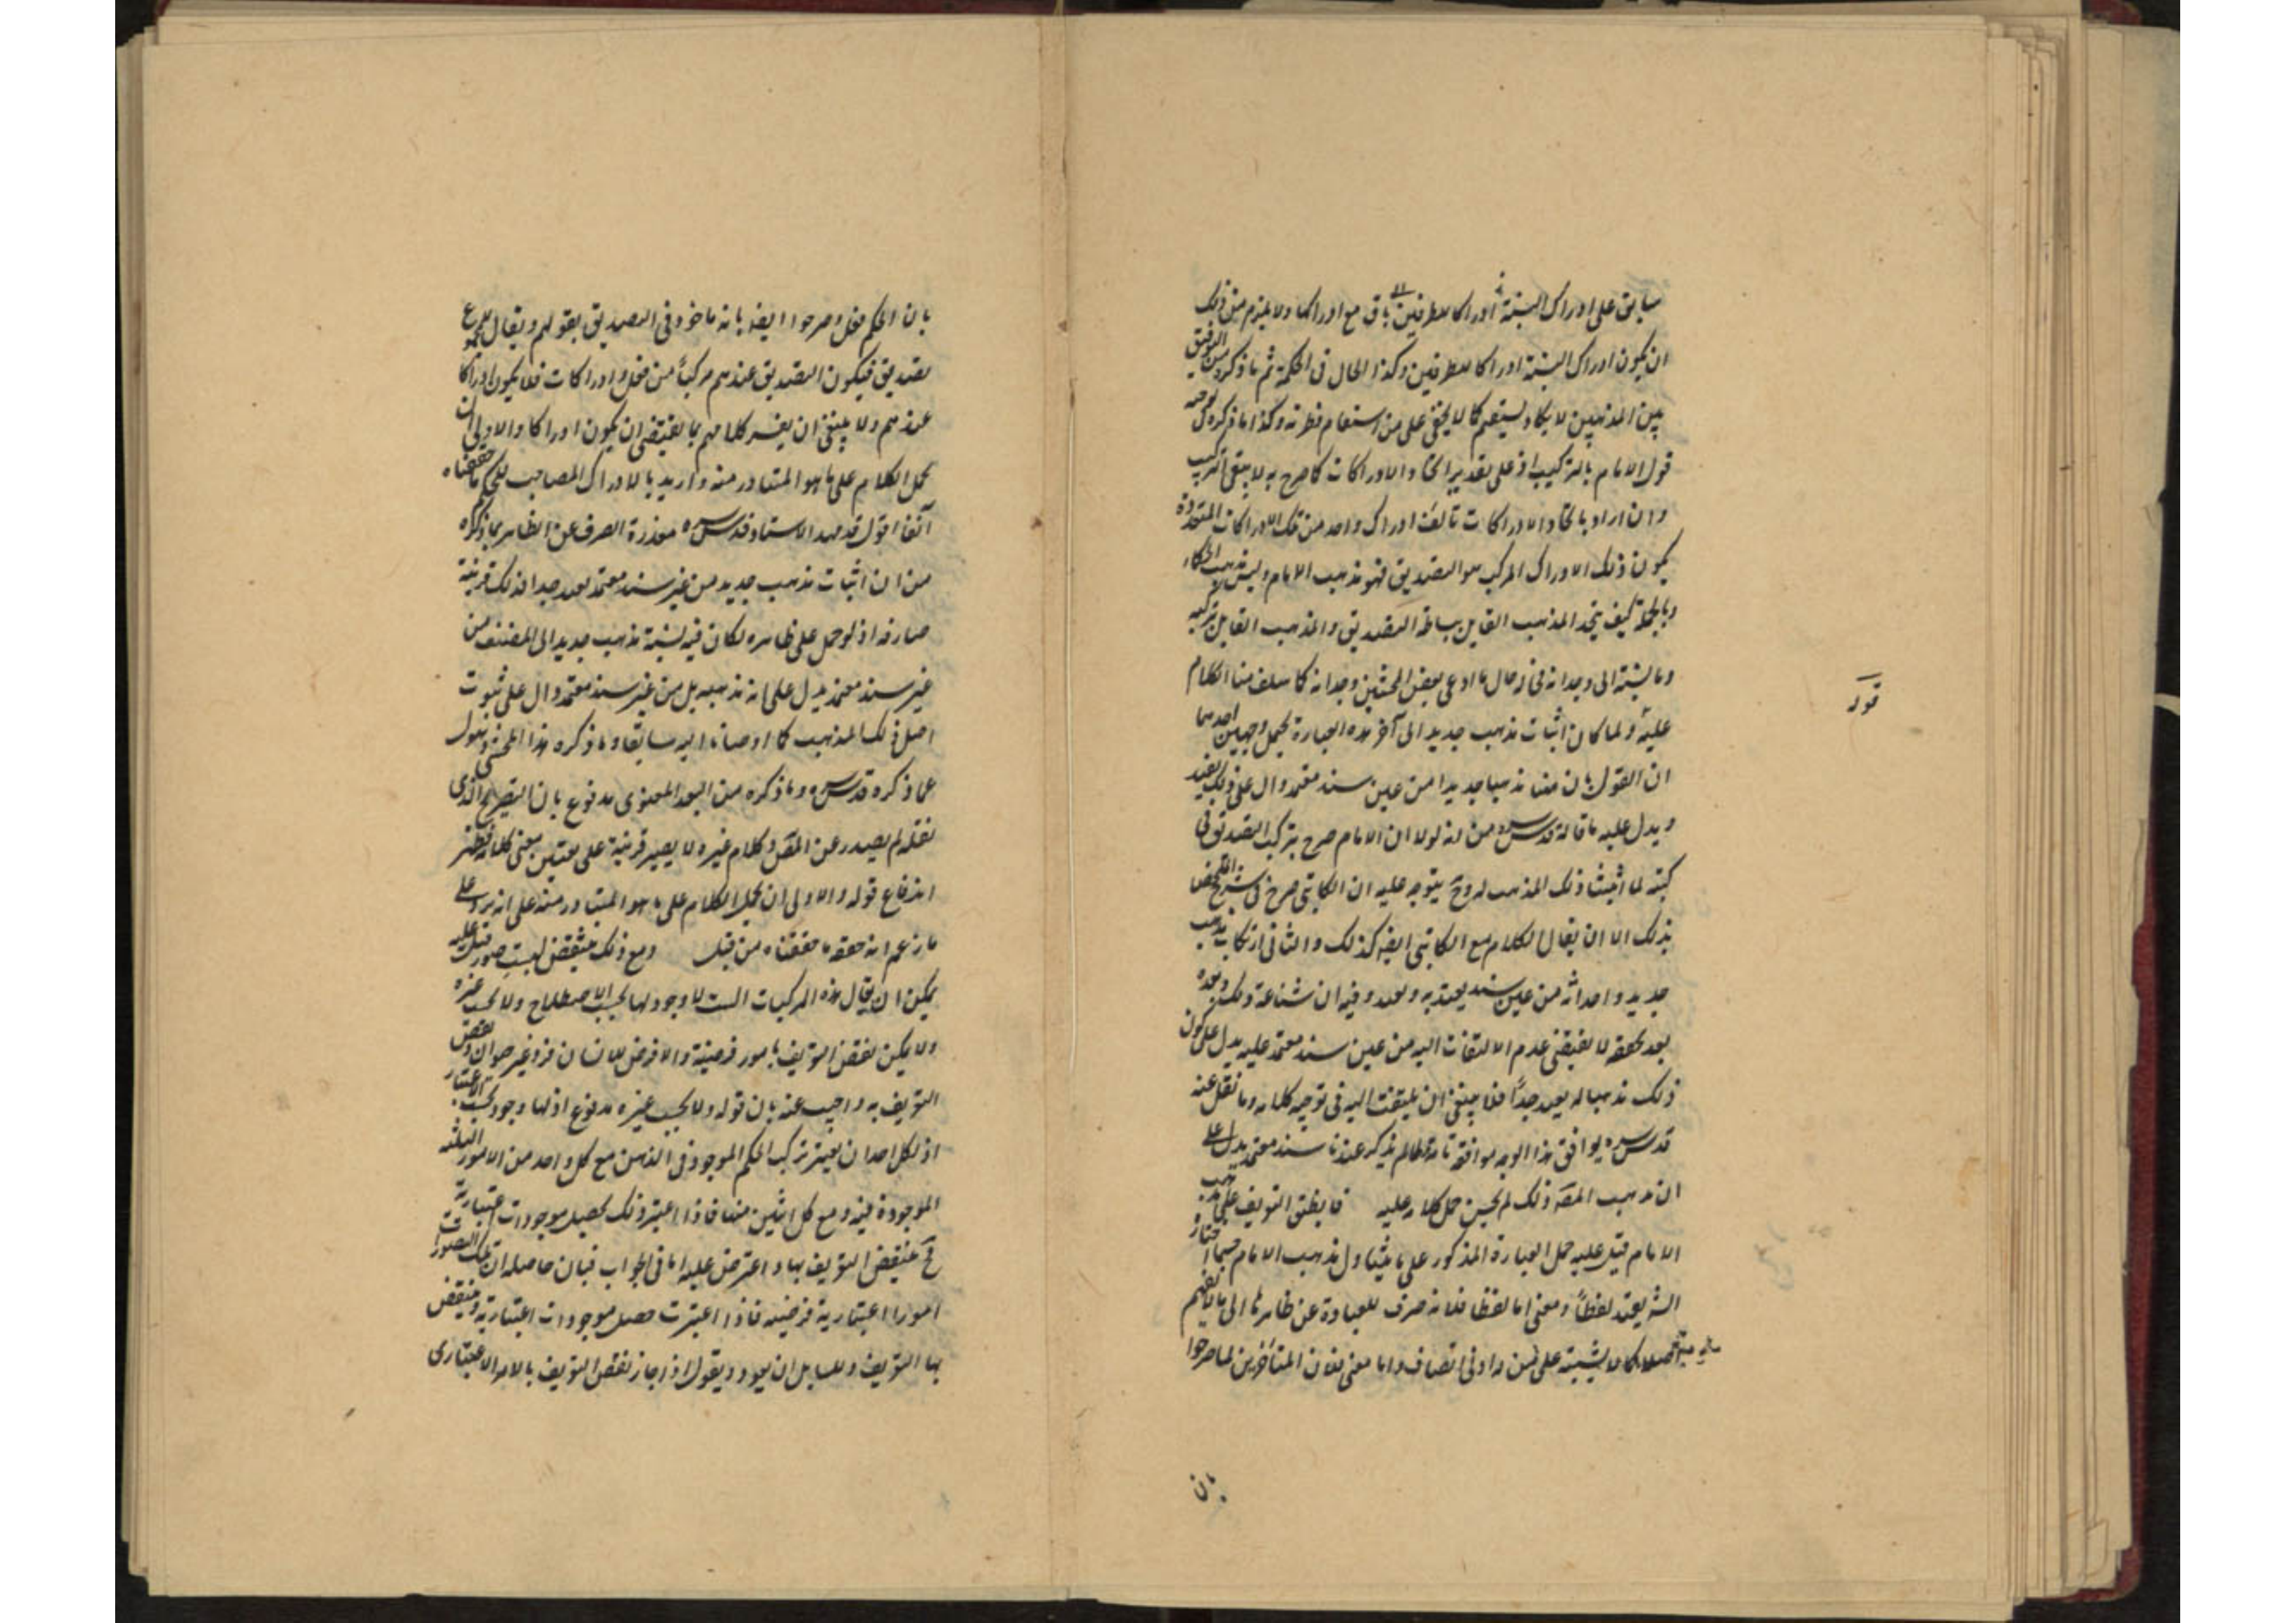 سابق على ادراك النسبة ادراكا للطرفين باق مع ادراكها ولا يلزم من ذلك
ان يكون ادراك النسبة ادراكا للطرفين وكذا الحال فى الحكمية ثم ما ذكره من التوفيق
بين المذهبين لا يكاد يستقيم كما لا يخفى على من استقام فطرته وكذا ما ذكره فى توجيه
قول الامام بالتركيب اذ على تقدير اتحاد الادراكات كما صرح به لا يبقى التركيب
وان اراد باتحاد الادراكات تألف ادراك واحد من تلك الادراكات المتعددة
يكون ذلك الادراك المركب هو التصديق فهو مذهب الامام وليس مذهب الحكماء
وبالجملة كيف يتحد المذهب القايل ببساطة التصديق والمذهب القايل بتركيبه
وما يشبه الى وجدانه فى حال ما ادعى بعض المحشين وجدانه كما سلف منا الكلام
عليه ولما كان اثبات مذهب جديد الى آخر هذه العبارة يحتمل وجهين احدهما
ان القول بان هنا مذهبا جديدا من غير سند معتمد دال على ذلك بعيد
ويدل عليه ما قاله قدس سره من انه لولا ان الامام صرح بتركيب التصديق فى
كتبه لما اثبتنا ذلك المذهب له وح يتوجه عليه ان الكاتبى صرح فى شرح الملخص
بذلك الا ان يقال الكلام مع الكاتبى ايضا كذلك والثانى ارتكاب مذهب
جديد واحداثه من غير سند يعتد به وبعد وفيه ان شناعة ذلك وبعده
بعد تحققه لا يقتضى عدم الالتفات اليه من غير سند معتمد عليه يدل على كون
ذلك مذهبا له بعيد جدًا فلا ينبغى ان يلتفت اليه فى توجيه كلامه وما نقل عنه
قدس سره يوافق هذا الوجه موافقة تامة لم يذكر عندنا سند معتمد يدل على
ان مذهب المصَ ذلك لم يحسن حمل كلامه عليه فانطبق التعريف على مذهب
الامام قيل عليه حمل العبارة المذكور على ما يتناول مذهب الامام حسبما اختاره
الشَ بعيد لفظاً ومعنى اما لفظا فلانه صرف للعبارة عن ظاهرها الى ما لا يفهم
اصلا كما لا يشتبه على من له ادنى انصاف واما معنى فلان المتأخرين لما صرحوا
قوله
بان
بان الحكم فعل وصرحوا ايضا بانه ماخوذ فى التصديق بقولهم ويقال للمجموع
تصديق فيكون التصديق عندهم مركبًا من فعل وادراكات فلا يكون ادراكا
عندهم ولا ينبغى ان يفسر كلامهم بما يقتضى ان يكون ادراكا والاولى ان
يحمل الكلام على ما هو المتبادر منه واريد بالادراك المصاحب للحكم ما حققناه
آنفا اقول قد مهد الاستاد قدس سره معذرة الصرف عن الظاهر بما ذكره
من ان اثبات مذهب جديد من غير سند معتمد بعيد جدا فذلك قرينة
صارفة اذ لو حمل على ظاهره لكان فيه نسبة مذهب جديد الى المصنف من
غير سند معتمد يدل على انه مذهبه بل من غير سند معتمد دال على ثبوت
اصل ذلك المذهب كما اوصانا اليه سابقا وما ذكره هذا المحشى ذهول
عما ذكره قدس سره وما ذكره من البعد المعنوى مدفوع بان التصريح الذى
نقله لم يصدر عن المصَ وكلام غيره لا يصير قرينة على تعيين معنى كلامه فظهر
اندفاع قوله والاولى ان يحمل الكلام على ما هو المتبادر منه على انه يرد على
ما زعم انه حققه ما حققناه من قبل ومع ذلك ينتقض لست صور قيل عليه
يمكن ان يقال هذه المركبات الست لا وجود لها بحسب الاصطلاح ولا بحسب غيره
ولا يمكن نقض التعريف بامور فرضية والا فرض للانسان فرد غير حيوان ونقض
التعريف به واجيب عنه بان قوله ولا بحسب غيره مدفوع اذ لها وجود بحسب الاعتبار
اذ لكل احد ان يعتبر تركب الحكم الموجود فى الذهن مع كل واحد من الامور الثلثة
الموجودة فيه ومع كل اثنين منها فاذا اعتبر ذلك يحصل موجودات اعتبارية
فح ينتقض التعريف بها واعترض عليه اما فى الجواب فبان حاصله ان تلك الصور
امورا اعتبارية فرضية فاذا اعتبرت حصل موجودات اعتبارية وينتقض
بها التعريف وللسايل ان يعود ويقول اذ جاز نقض التعريف بالامر الاعتبارى